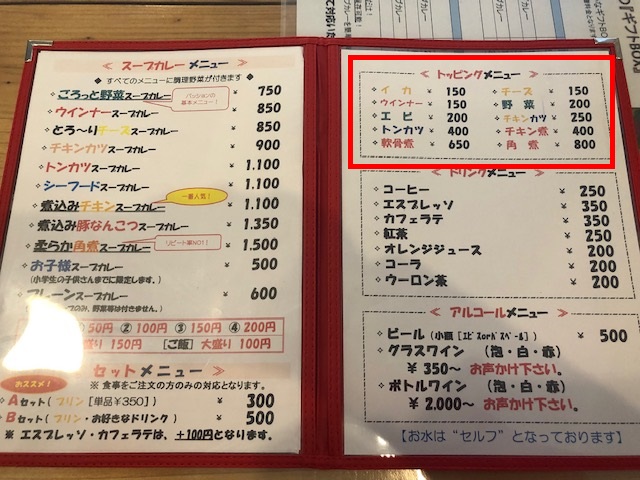 スープカレーメニュー
◆ すべてのメニューに調理野菜が付きます ◆
ごろっと野菜スープカレー ¥ 750
パッションの
基本メニュー！
ウインナースープカレー ¥ 850
とろ～りチーズスープカレー ¥ 850
チキンカツスープカレー ¥ 900
トンカツスープカレー ¥ 1.100
シーフードスープカレー ¥ 1.100
一番人気！
煮込みチキンスープカレー ¥ 1.100
煮込み豚なんこつスープカレー ¥ 1.350
柔らか角煮スープカレー ¥ 1.500
リピート率NO1！
お子様スープカレー ¥ 500
(小学生の子供さんまでに限定します。)
プレーンスープカレー ¥ 600
プのみ、野菜等は付きません。)
50円 ② 100円 ③ 150円 ④ 200円
盛り 150円 [ご飯] 大盛り 100円
セットメニュー
おススメ！
※ 食事をご注文の方のみの対応となります。
Aセット( プリン [単品¥350] ) ¥ 300
Bセット( プリン・お好きなドリンク ) ¥ 500
※ エスプレッソ・カフェラテは、+100円となります。
トッピングメニュー
イカ ¥ 150 チーズ ¥ 150
ウインナー ¥ 150 野菜 ¥ 200
エビ ¥ 200 チキンカツ ¥ 250
トンカツ ¥ 400 チキン煮 ¥ 400
軟骨煮 ¥ 650 角煮 ¥ 800
ドリンクメニュー
コーヒー ¥ 250
エスプレッソ ¥ 350
カフェラテ ¥ 350
紅茶 ¥ 250
オレンジジュース ¥ 200
コーラ ¥ 200
ウーロン茶 ¥ 200
アルコールメニュー
ビール (小瓶 [ｴﾋﾞｽorﾊﾞｽﾍﾟｰﾙ]) ¥ 500
グラスワイン (泡・白・赤)
¥ 350～ お声かけ下さい。
ボトルワイン (泡・白・赤)
¥ 2.000～ お声かけ下さい。
【お水は“セルフ”となっております】